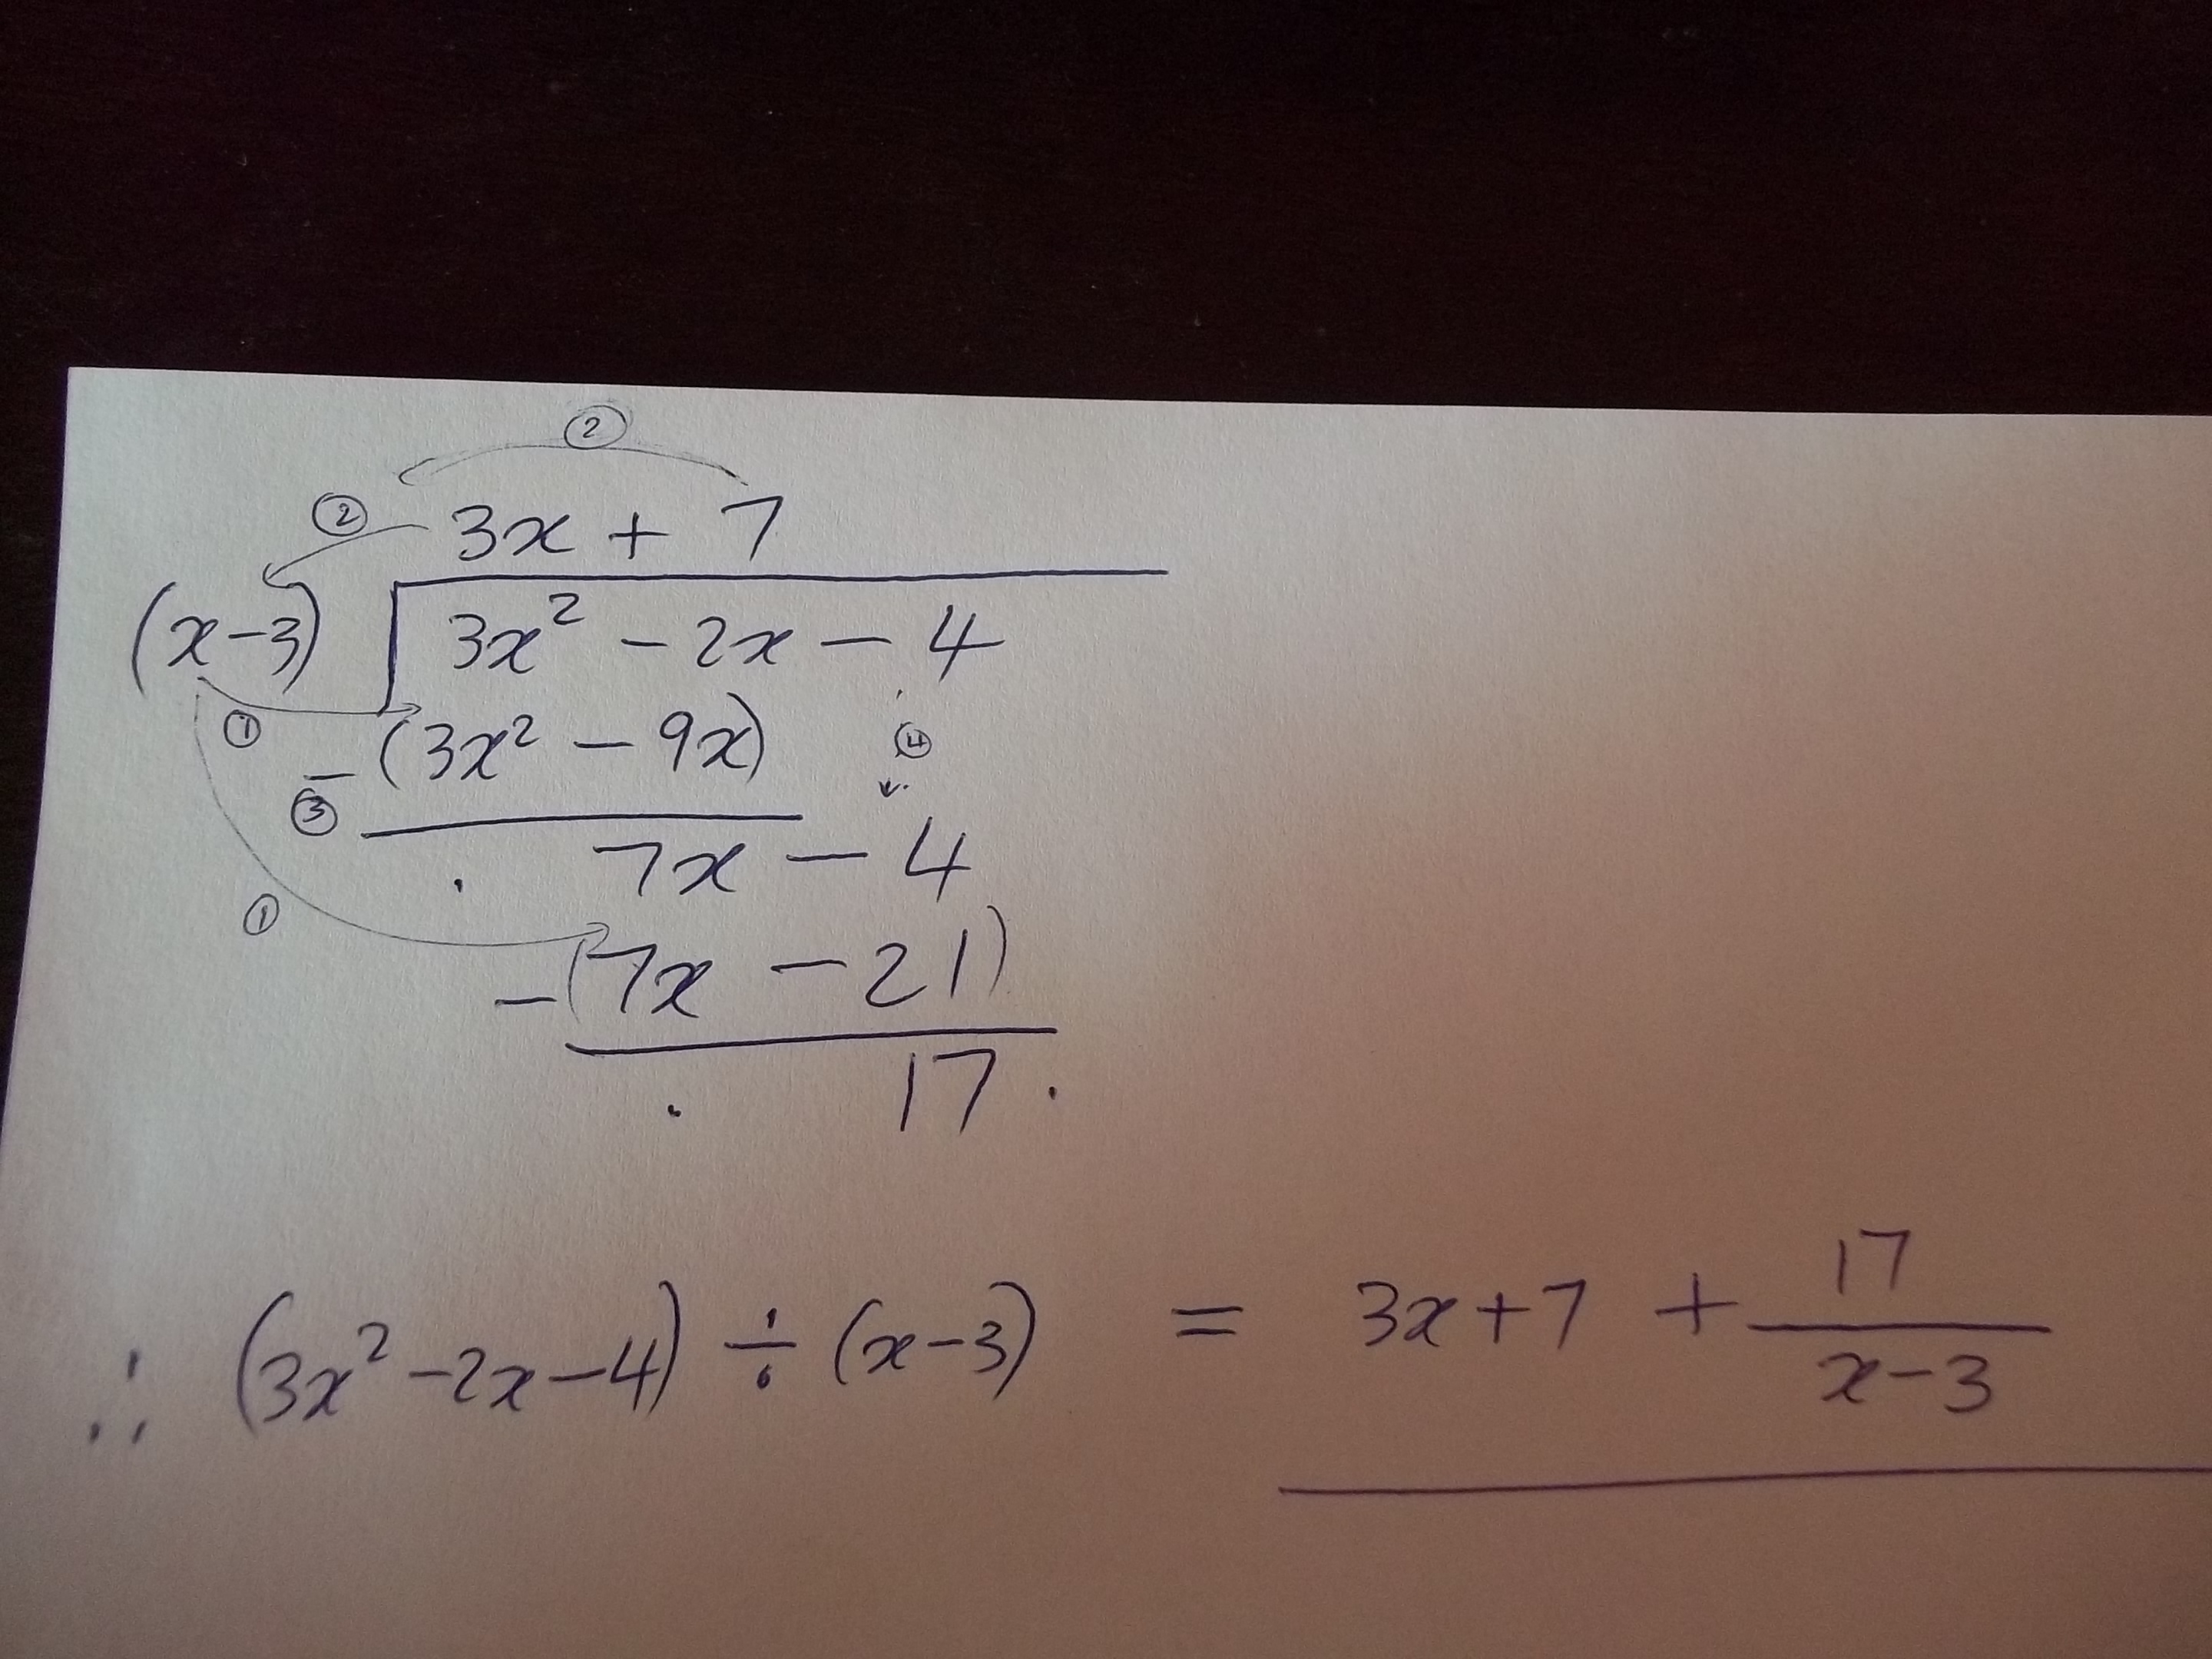 ②
② 3x + 7
(x-3) 3x² - 2x - 4
① - (3x² - 9x) ④
③
7x - 4
①
- (7x - 21)
17.
∴ (3x² - 2x - 4) ÷ (x-3) = 3x+7 + 17/(x-3)